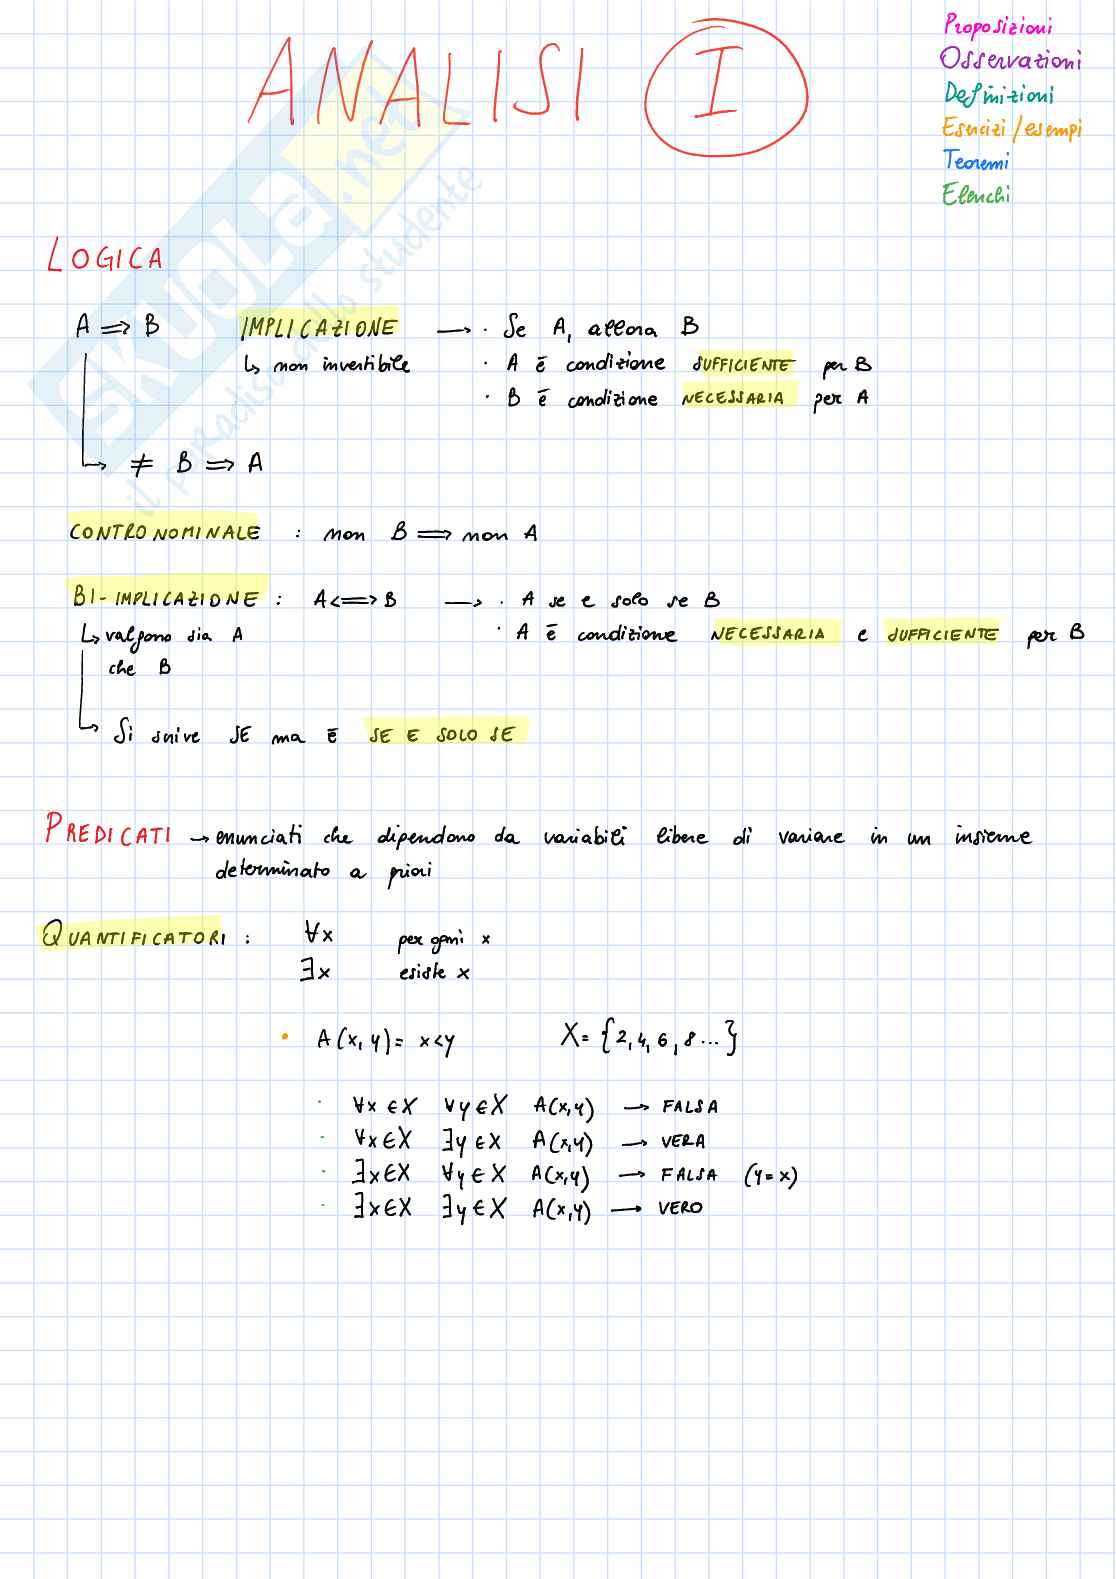 ANALISI I
Proposizioni
Osservazioni
Definizioni
Esercizi / esempi
Teoremi
Elenchi
SKUOLA.net
il paradiso dello studente
LOGICA
A ⟹ B IMPLICAZIONE → · Se A, allora B
↳ non invertibile · A è condizione SUFFICIENTE per B
· B è condizione NECESSARIA per A
↳ ≠ B ⟹ A
CONTRONOMINALE : non B ⟹ non A
BI-IMPLICAZIONE : A ⟺ B → · A se e solo se B
↳ valgono sia A · A è condizione NECESSARIA e SUFFICIENTE per B
che B
↳ Si scrive SE ma è SE E SOLO SE
PREDICATI → enunciati che dipendono da variabili libere di variare in un insieme
determinato a priori
QUANTIFICATORI : ∀x per ogni x
∃x esiste x
• A(x,y) = x<y X = {2,4,6,8...}
· ∀x ∈ X ∀y ∈ X A(x,y) → FALSA
- ∀x ∈ X ∃y ∈ X A(x,y) → VERA
· ∃x ∈ X ∀y ∈ X A(x,y) → FALSA (y=x)
· ∃x ∈ X ∃y ∈ X A(x,y) → VERO